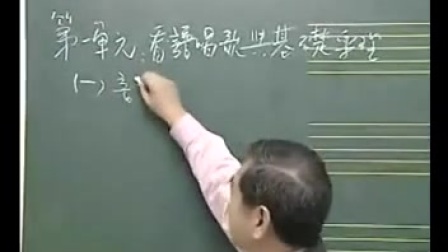 第一單元:看譜唱歌與基礎樂理
(一)